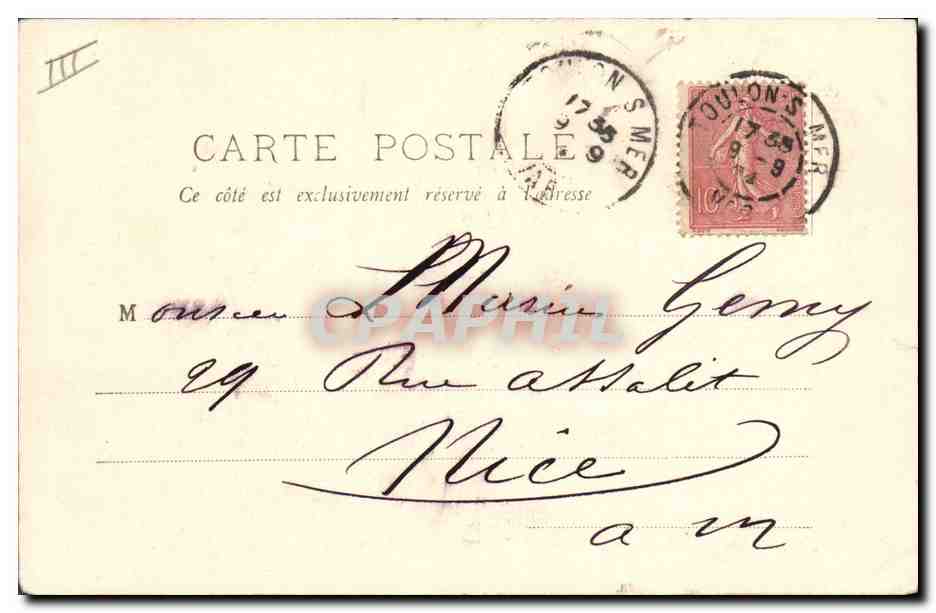 III
TOULON S MER
17 35
9 - 9
VAR
TOULON-S-MER
17 35
9 - 9
04
VAR
10
CARTE POSTALE
Ce côté est exclusivement réservé à l'adresse
Monsieur L Marius Gerny
CPAPHIL
29 Rue Assalit
Nice
a m